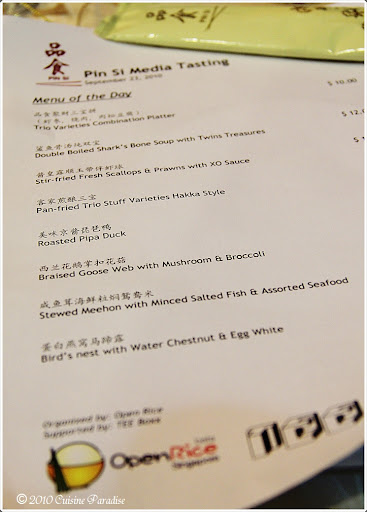 品食
PIN SI
Pin Si Media Tasting
September 23, 2010
Menu of the Day
Trio Varieties Combination Platter
$ 10.00
Double Boiled Shark's Bone Soup with Twins Treasures
$ 12.
Stir-fried Fresh Scallops & Prawns with XO Sauce
客家煎酿三宝
Pan-fried Trio Stuff Varieties Hakka Style
美味京酱琵琶鸭
Roasted Pipa Duck
西兰花鹅掌扣花菇
Braised Goose Web with Mushroom & Broccoli
咸鱼茸海鲜杜焖鸳鸯米
Stewed Meehon with Minced Salted Fish & Assorted Seafood
蛋白燕窝马蹄露
Bird's nest with Water Chestnut & Egg White
Organised by: Open Rice
Supported by: TEE Boss
OpenRice
Singapore
© 2010 Cuisine Paradise